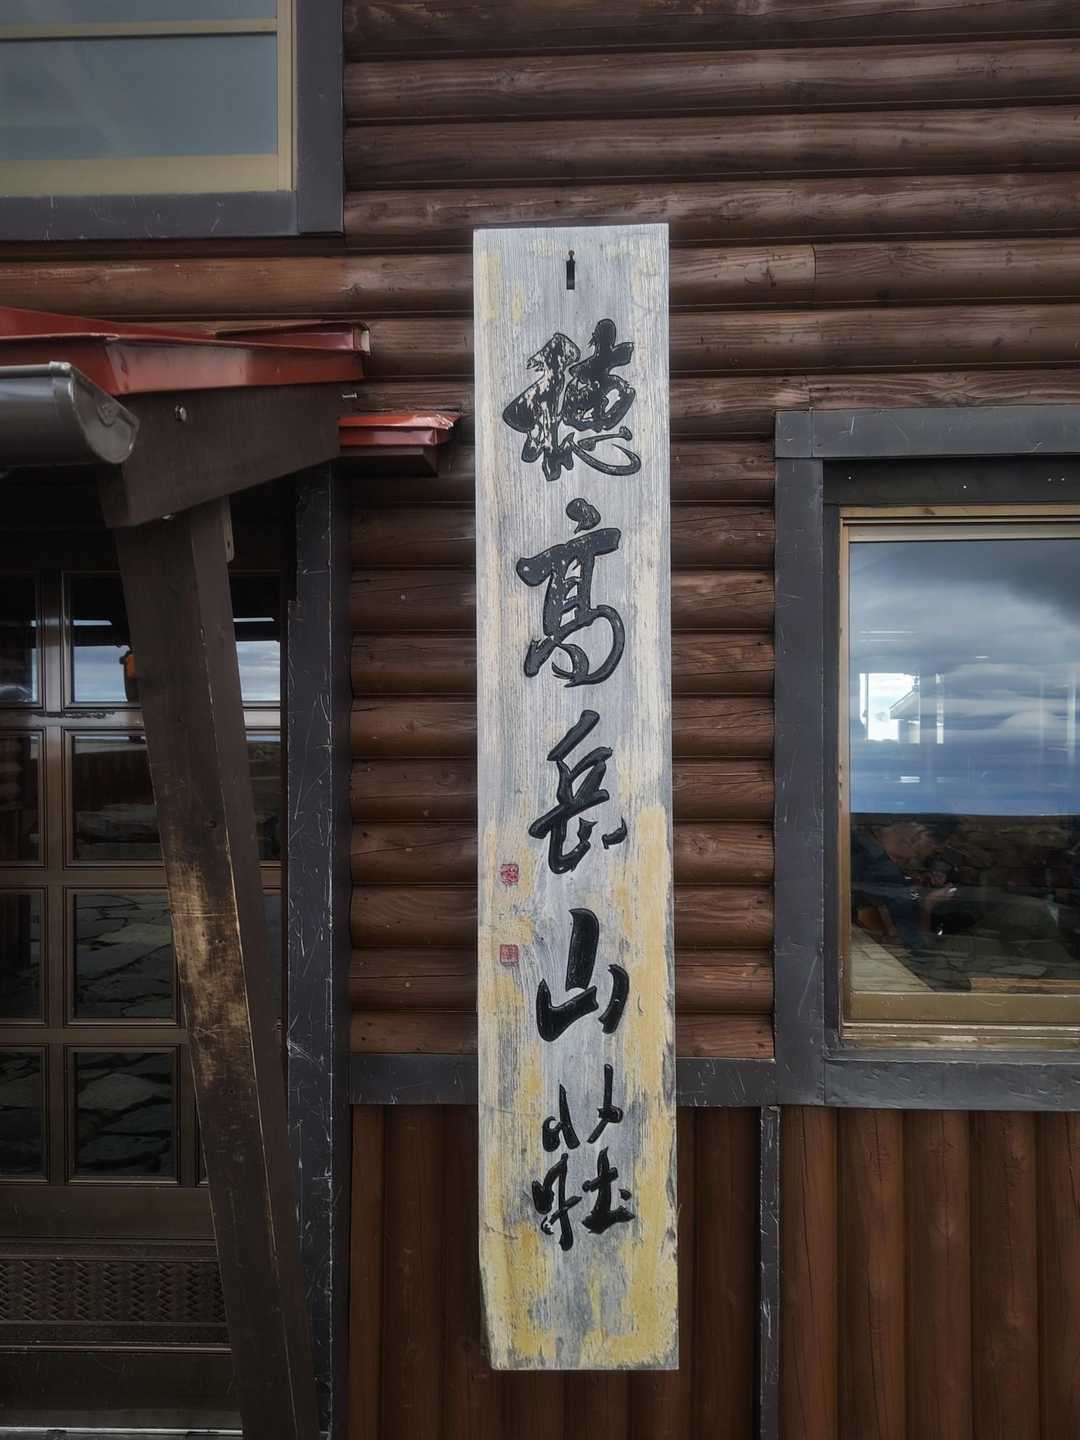 穂高岳山荘